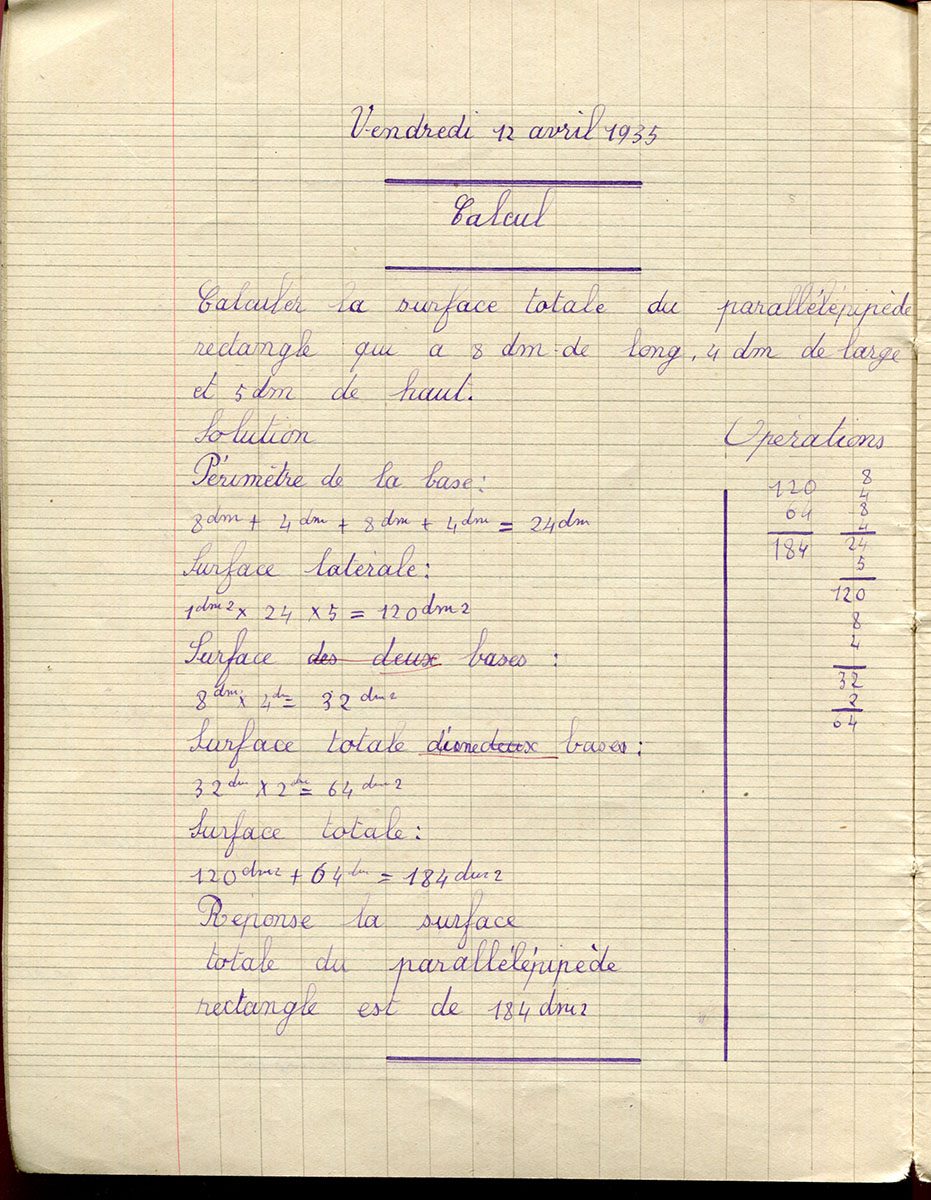 Vendredi 12 avril 1935
Calcul
Calculer la surface totale du parallélépipède
rectangle qui a 8 dm de long, 4 dm de large
et 5 dm de haut.
Solution
Opérations
Périmètre de la base :
8 dm + 4 dm + 8 dm + 4 dm = 24 dm
Surface latérale :
1 dm2 × 24 × 5 = 120 dm2
Surface des deux bases :
8 dm × 4 dm = 32 dm2
Surface totale bases :
32 dm × 2 dm = 64 dm2
Surface totale :
120 dm2 + 64 dm = 184 dm2
Réponse la surface
totale du parallélépipède
rectangle est de 184 dm2
120
64
184
8
4
8
4
24
5
120
8
4
32
2
64